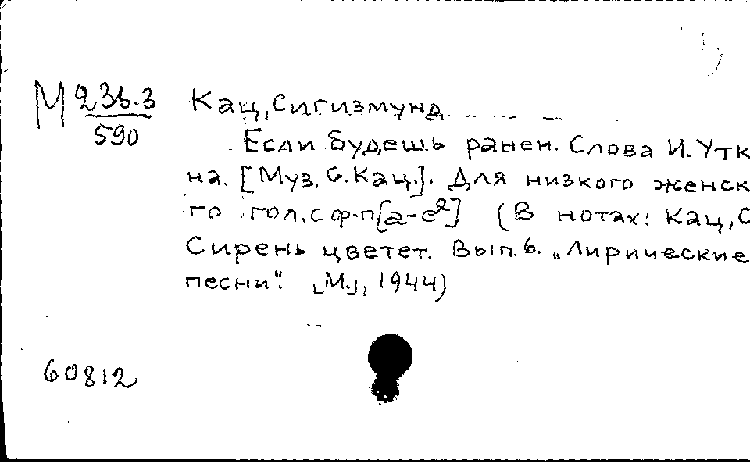 М 236.3 Кац, Сигизмунд
590
Если будешь ранен. Слова И. Утк
на. [Муз. С. Кац.]. Для низкого женск
го гол. с ф-п [a-e²] (В нотах: Кац, С
Сирень цветет. Вып. 6. „Лирические
песни". [М.], 1944)
60812